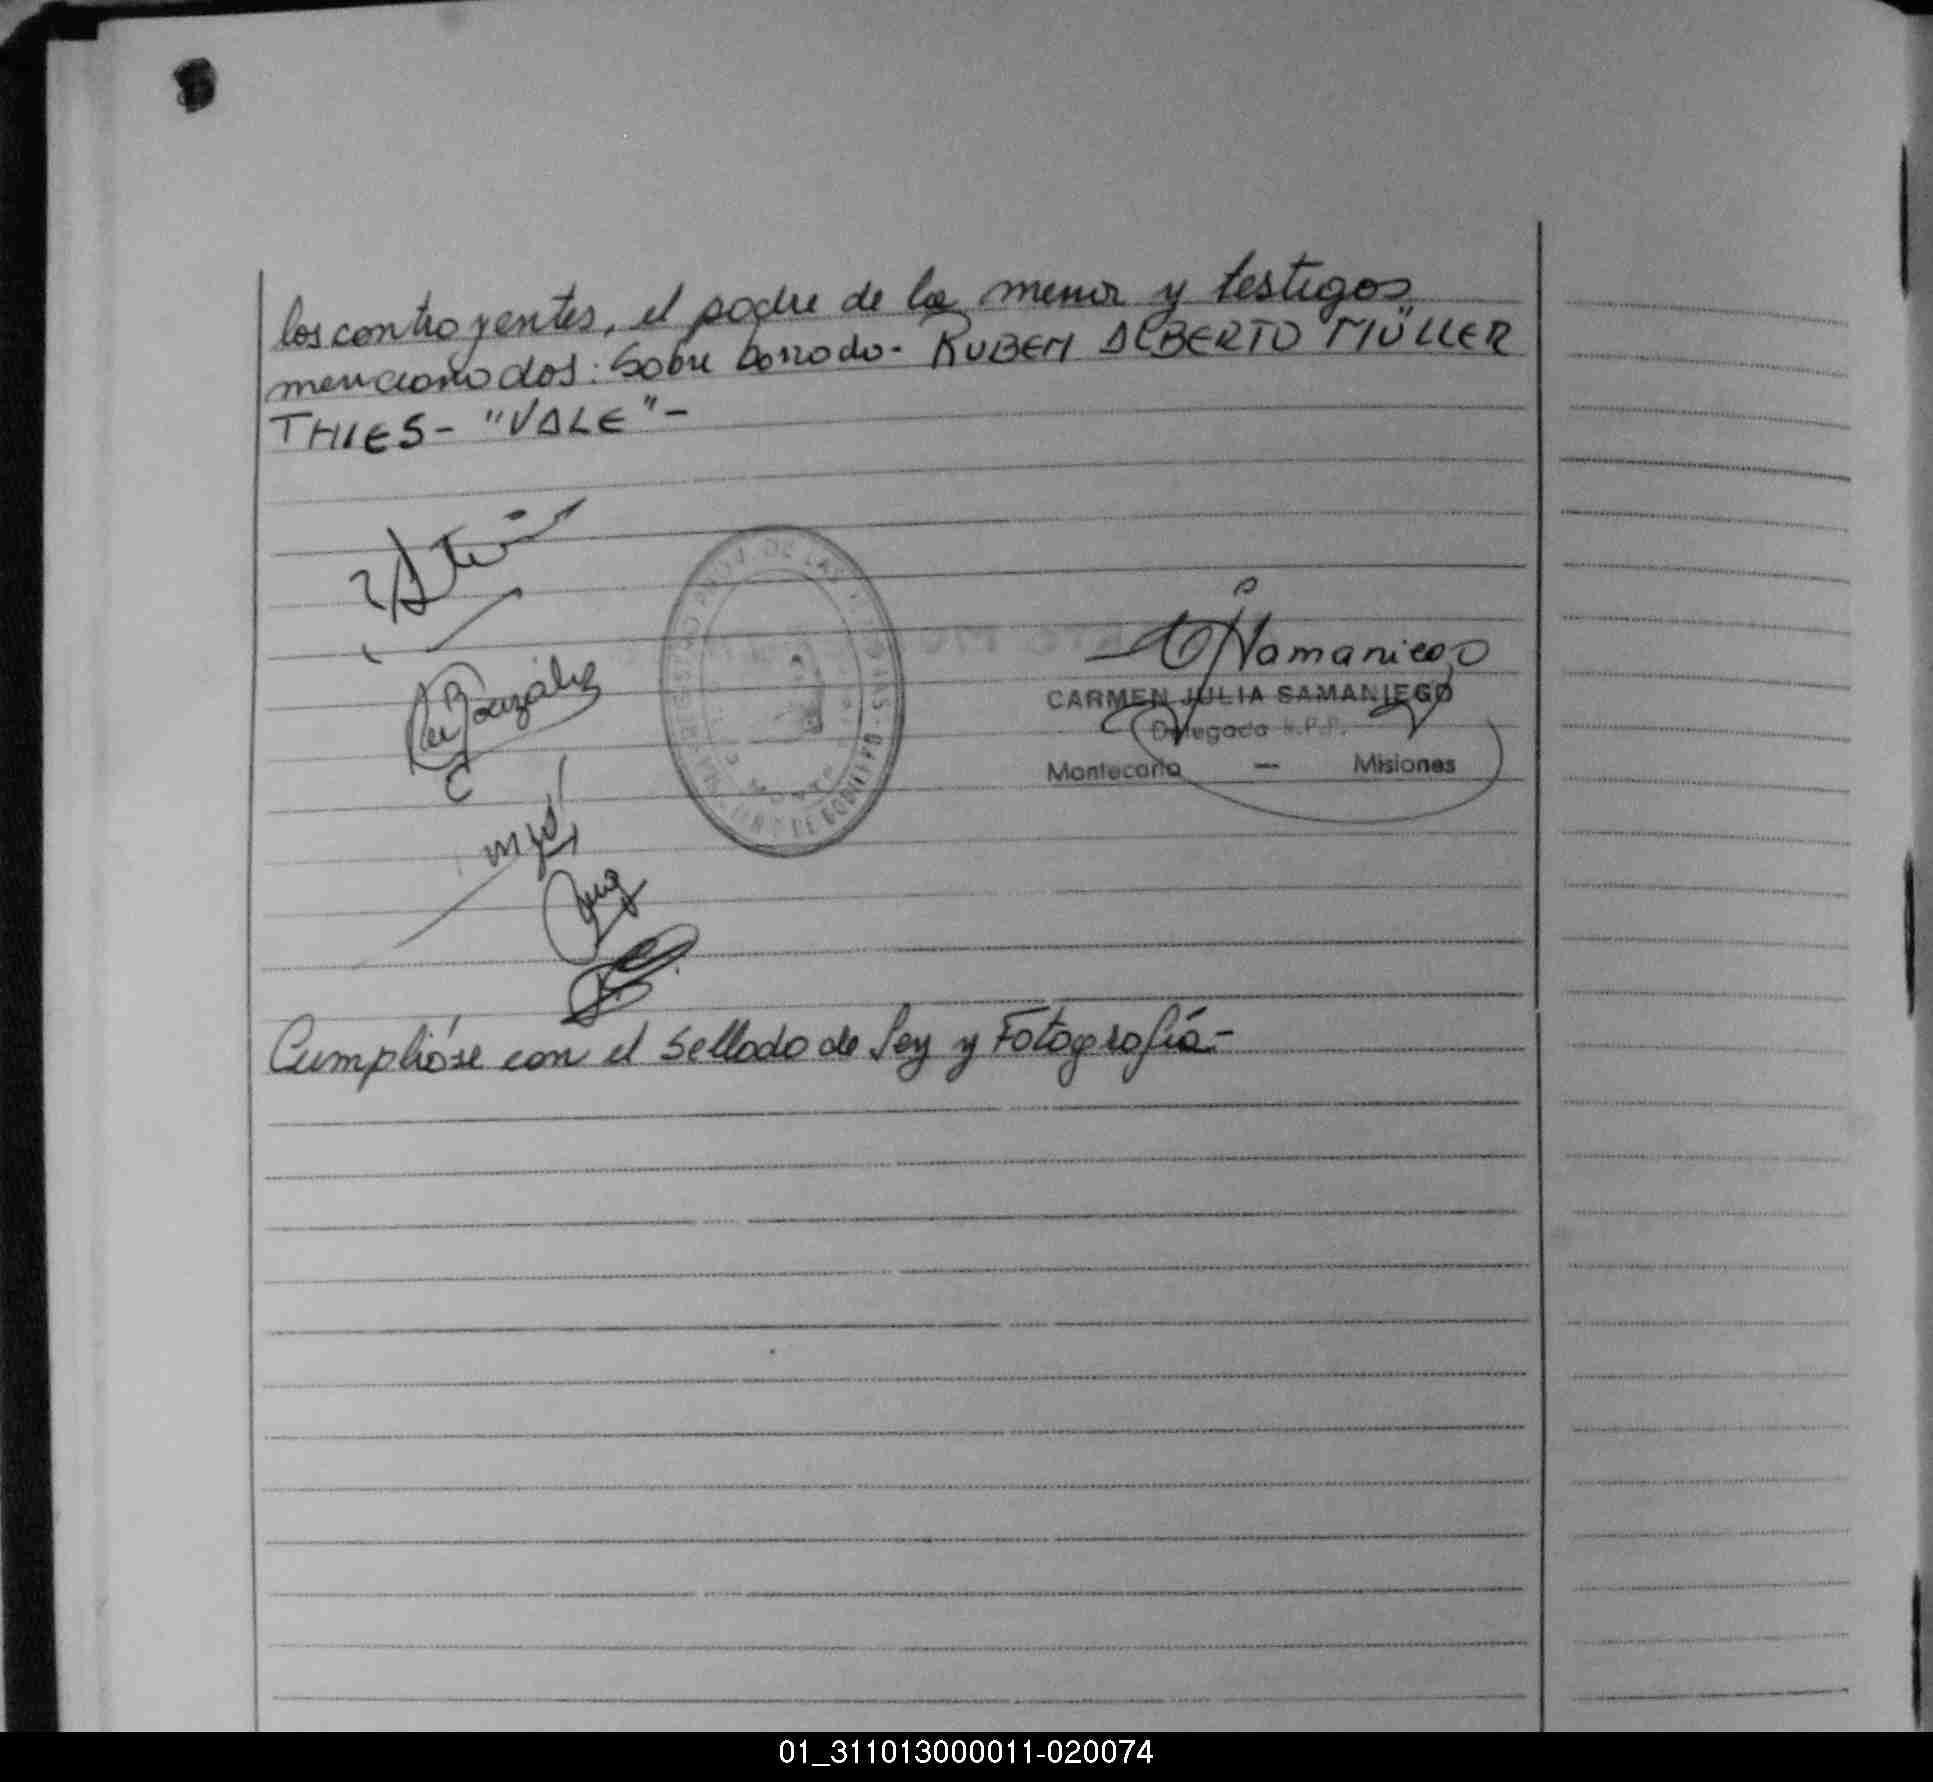 los contrayentes, el padre de la menor y testigos
mencionados: Sobre borrado- RUBEN ALBERTO MÜLLER
THIES- "VALE"-
González
CARMEN JULIA SAMANIEGO
Delegada R.P.P.
Montecarlo — Misiones
Cumplióse con el sellado de Ley y Fotografía-
01_311013000011-020074